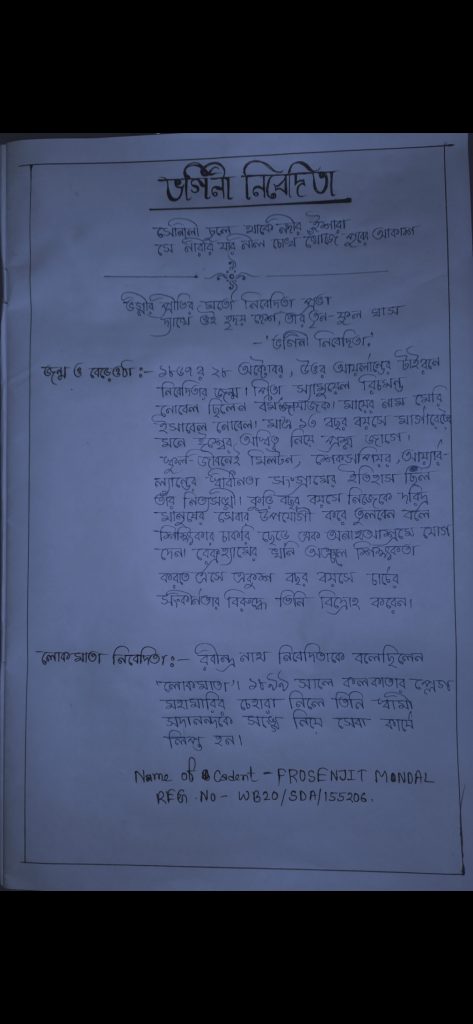 ভগিনী নিবেদিতা
সোনালী চুলে যাকে নদীর ইশারা
সে নারীর যার নীল চোখ খোঁজে পুবের আকাশ
ও
ভগ্নীর প্রীতির মতো নিবেদিতা
ওই হৃদয় দেশে, তার তৃন-ফুল ঘাস
-'ভগিনী নিবেদিতা'
জন্ম ও বেড়েওঠা :- ১৮৬৭ র ২৮ অক্টোবর, উত্তর আয়ার্ল্যান্ডের টাইরনে
নিবেদিতার জন্ম। পিতা স্যামুয়েল রিচমন্ড
নোবেল ছিলেন ধর্মযাজক। মায়ের নাম মেরি
ইসাবেল নোবেল। মাত্র ১৩ বছর বয়সে মার্গারেটের
মনে ঈশ্বর অস্তিত্ব নিয়ে প্রশ্ন জাগে।
স্কুল-জীবনেই মিলটন, শেকসপীয়র, আয়ার-
ল্যান্ডের স্বাধীনতা সংগ্রামের ইতিহাস ছিল
তাঁর নিত্যসঙ্গী। কুড়ি বছর বয়সে নিজেকে দরিদ্র
মানুষের সেবার উপযোগী করে তুলবেন বলে
শিক্ষিকার চাকরি ছেড়ে এক অনাথআশ্রমে যোগ
দেন। রেক্সহ্যামের খনি অঞ্চলে শিক্ষকতা
করতে এসে একুশ বছর বয়সে চার্চের
সংকীর্ণতার বিরুদ্ধে তিনি বিদ্রোহ করেন।
লোকমাতা নিবেদিতা :- রবীন্দ্র নাথ নিবেদিতাকে বলেছিলেন
"লোকমাতা"। ১৮৯৯ সালে কলকাতার প্লেগ
মহামারির চেহারা নিলে তিনি স্বামী
সদানন্দকে সঙ্গে নিয়ে সেবা কার্যে
লিপ্ত হন।
Name of Cadent - PROSENJIT MONDAL
REG. No - WB20/SDA/155206.